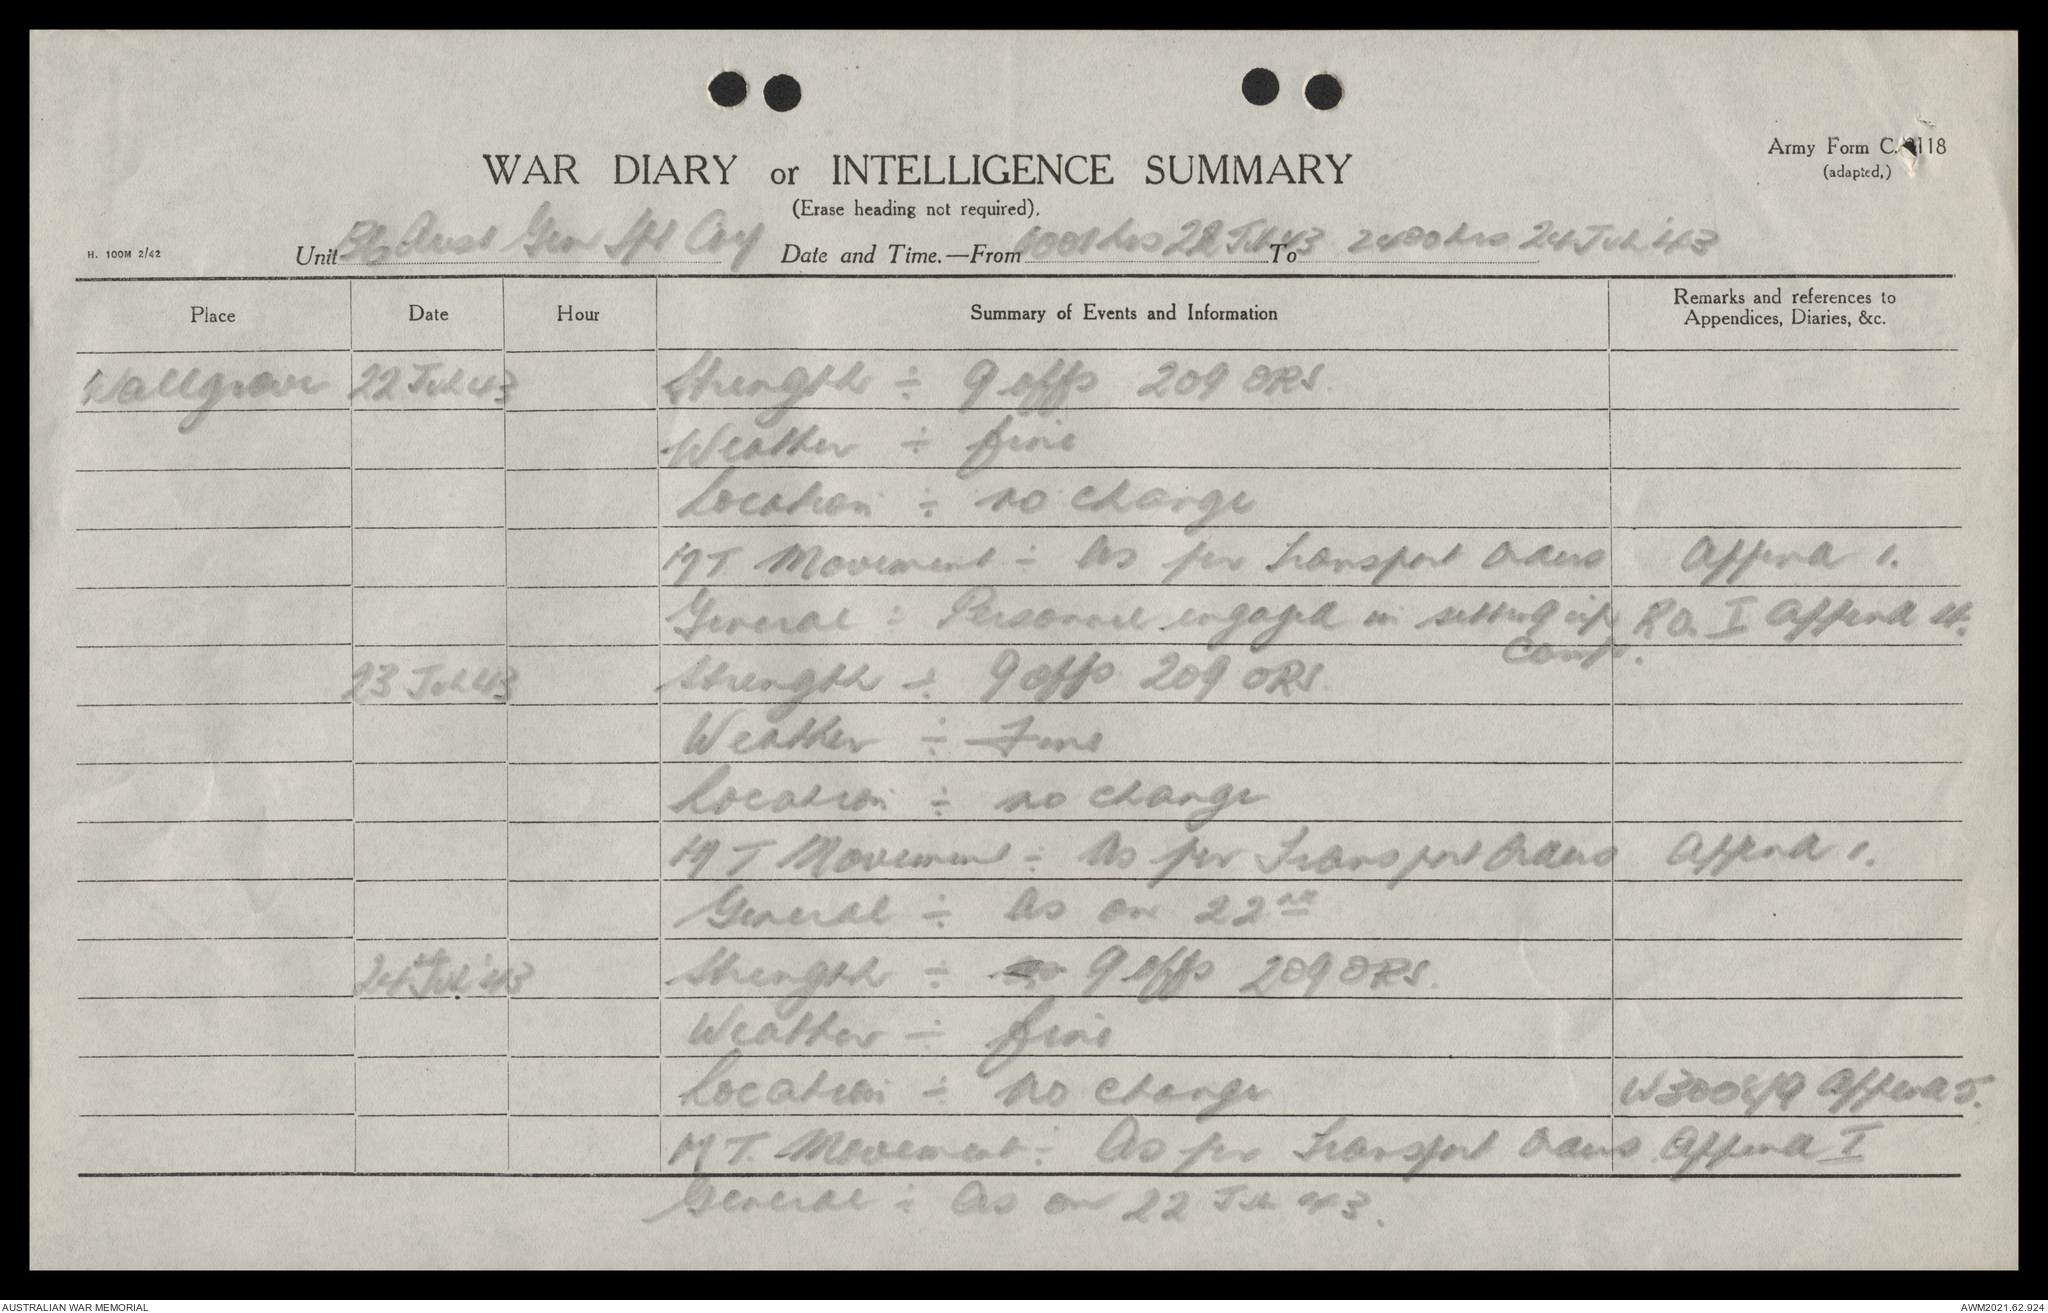 WAR DIARY or INTELLIGENCE SUMMARY
(Erase heading not required).
Army Form C. 2118
(adapted,)
H. 100M 2/42
Unit Aust Gen Tpt Coy Date and Time.—From 0001 hrs 22 Jul 43 To 2400 hrs 24 Jul '43
Place Date Hour Summary of Events and Information Remarks and references to
Appendices, Diaries, &c.
Wallgrove 22 Jul 43 Strength ÷ 9 offs 209 ORS.
Weather ÷ fine
Location ÷ no change
MT Movement ÷ As per Transport Orders Append 1.
General ÷ Personnel engaged in setting up RO. I Append 4.
Camp.
23 Jul 43 Strength ÷ 9 offs 209 ORS.
Weather ÷ Fine
Location ÷ no change
MT Movement ÷ As per Transport Orders Append 1.
General ÷ As on 22nd
24 Jul '43 Strength ÷ 9 offs 209 ORS.
Weather ÷ fine
Location ÷ no change W3008/A Append 5.
MT. Movement ÷ As per Transport Orders Append I
General ÷ As on 22 Jul 43.
AUSTRALIAN WAR MEMORIAL
AWM2021.62.924